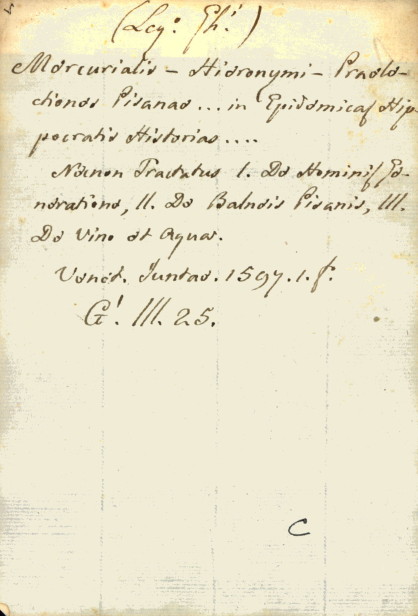 (Leg: Ph.)
Mercurialis - Hieronymi - Praele-
ctiones Pisanae ... in Epidemicas Hip-
pocratis Historias ....
Necnon Tractatus I. De Hominis Ge-
neratione, II. De Balneis Pisanis, III.
De Vino et Aqua.
Venet. Juntas. 1597. 1. f.
G'. III. 25.
C